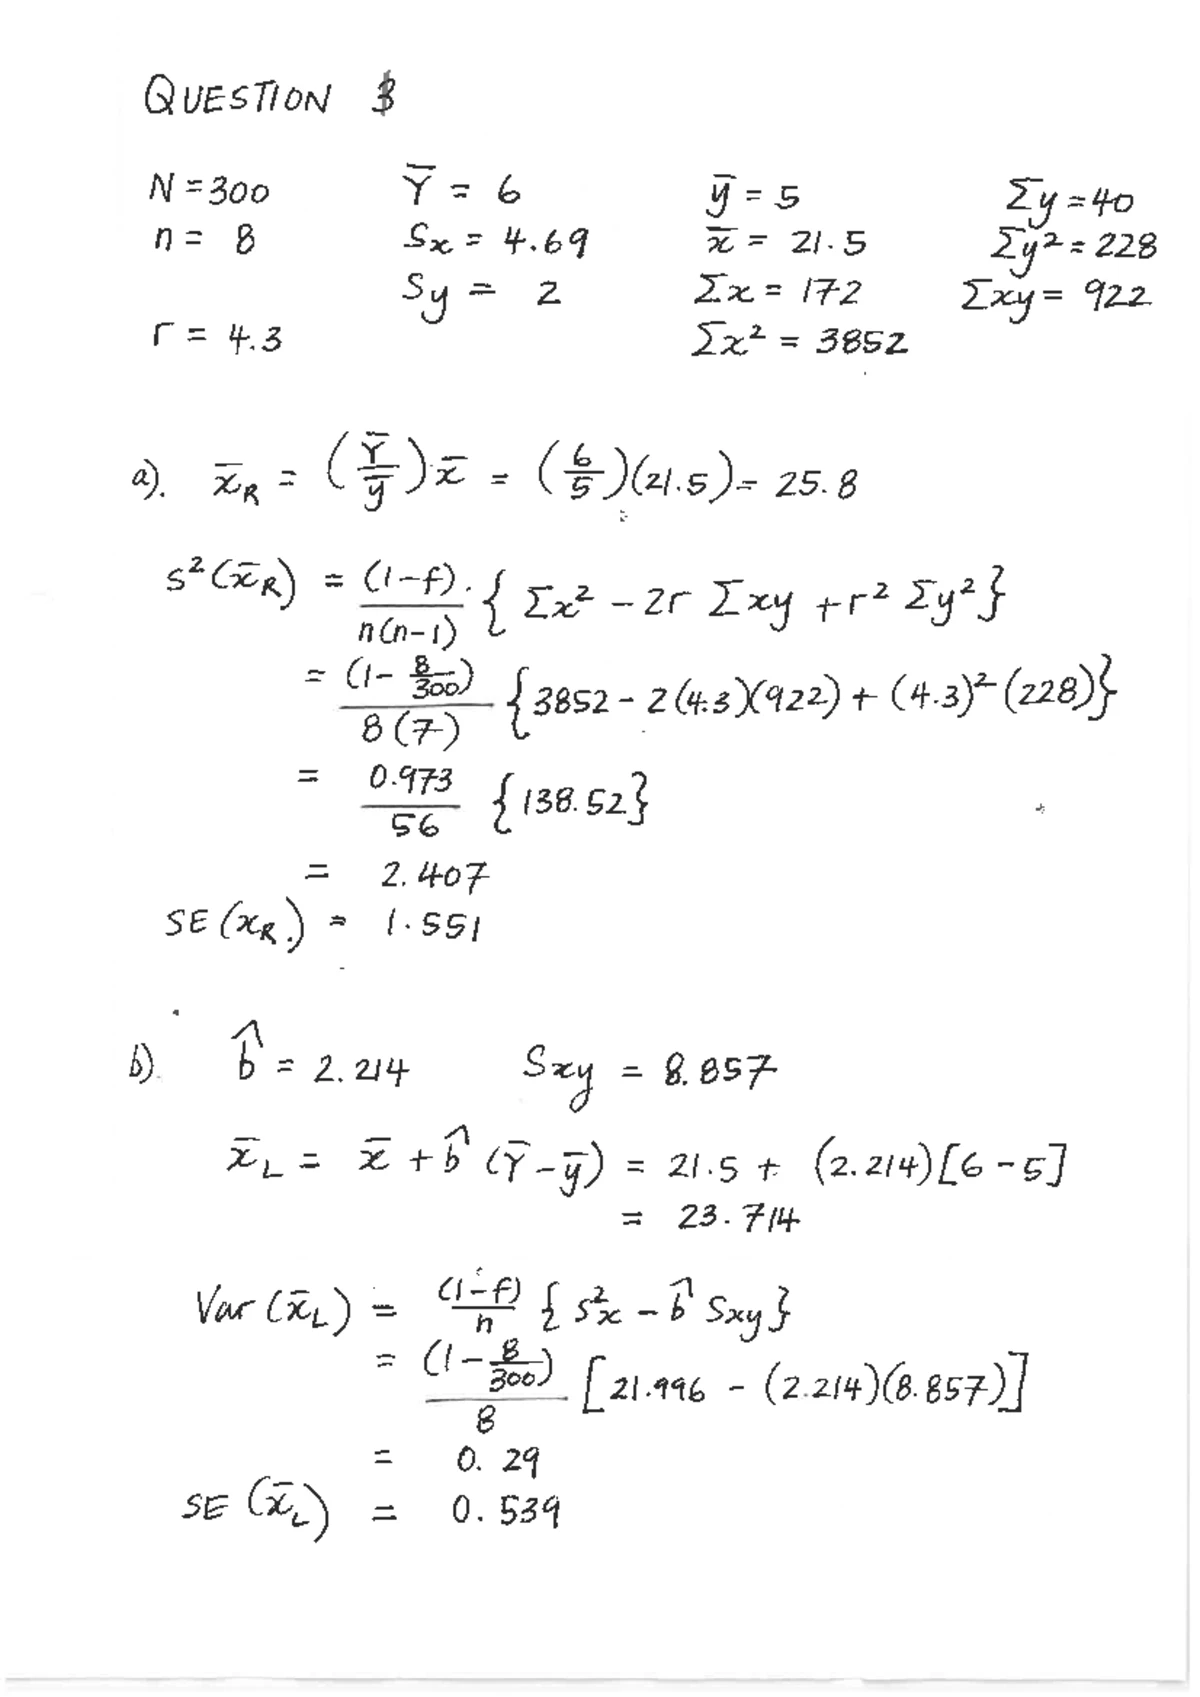 QUESTION 3
N = 300 Ȳ = 6 ȳ = 5 Σy = 40
n = 8 Sx = 4.69 x̄ = 21.5 Σy² = 228
Sy = 2 Σx = 172 Σxy = 922
r = 4.3 Σx² = 3852
a). x̄R = (Ȳ/ȳ) x̄ = (6/5)(21.5) = 25.8
s²(x̄R) = (1-f)/n(n-1) . { Σx² - 2r Σxy + r² Σy² }
= (1 - 8/300)/8(7) { 3852 - 2(4.3)(922) + (4.3)² (228) }
= 0.973/56 { 138.52 }
= 2.407
SE (xR.) = 1.551
b). b̂ = 2.214 Sxy = 8.857
x̄L = x̄ + b̂ (Ȳ - ȳ) = 21.5 + (2.214) [6 - 5]
= 23.714
Var (x̄L) = (1-f)/n { s²x - b̂ Sxy }
= (1 - 8/300)/8 [ 21.996 - (2.214)(8.857) ]
= 0.29
SE (x̄L) = 0.539